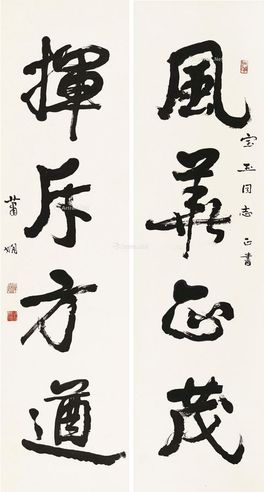 宝玉同志正書
風華正茂
揮斥方遒
蕭嫻